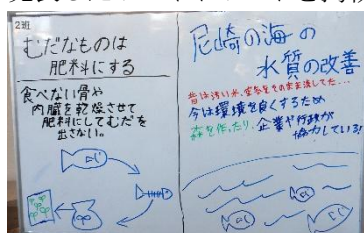 2班
むだなものは
肥料にする
食べない骨や
内臓を乾燥させて
肥料にしてむだを
出さない。
尼崎の海の
水質の改善
昔は汚い水、空気をそのまま流してた…
今は環境を良くするため
森を作ったり、企業や行政が
協力している!